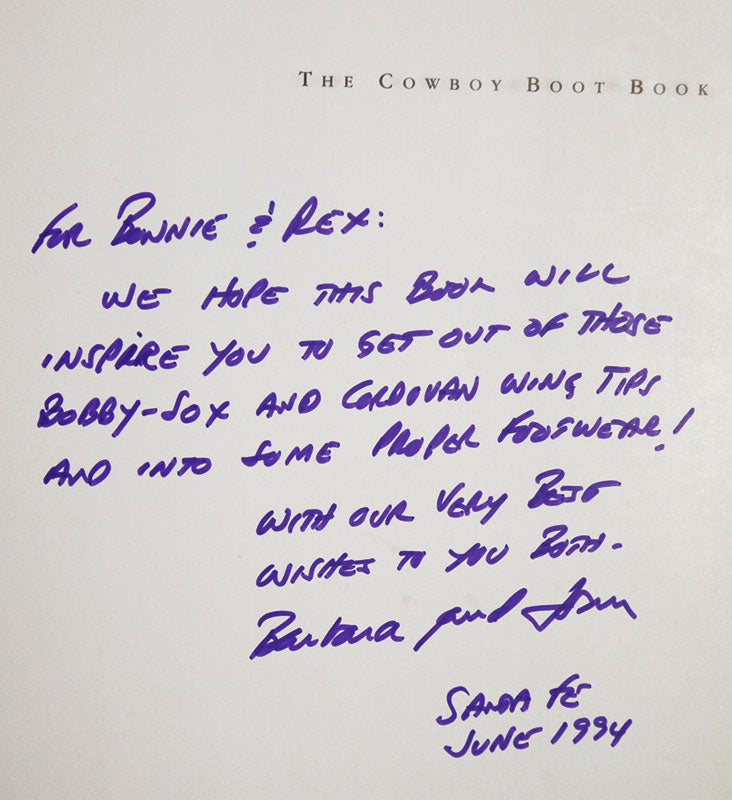 THE COWBOY BOOT BOOK
FOR BONNIE & REX:
WE HOPE THIS BOOK WILL
INSPIRE YOU TO GET OUT OF THOSE
BOBBY-SOX AND CORDOVAN WING TIPS
AND INTO SOME PROPER FOOTWEAR!
WITH OUR VERY BEST
WISHES TO YOU BOTH.
Barbara and
SANTA FE
JUNE 1994